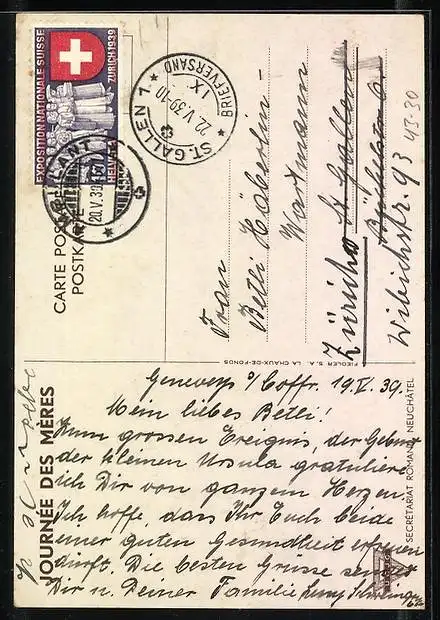 EXPOSITION NATIONALE SUISSE
ZURICH 1939
HELVETIA
20.V.39
ST. GALLEN 1.
22.V.39.-10
IX
BRIEFVERSAND
CARTE POSTALE
POSTKARTE
Frau
Betli Häberlin-
Wartmann
St. Gallen
Zürich 6
Wibichstr. 93
43.30
FIEDLER S.A. LA CHAUX-DE-FONDS
JOURNÉE DES MÈRES
SECRÉTARIAT ROMAND NEUCHÂTEL
Geneveys s/Coffr. 19.V.39.
Mein liebes Betli!
Zum grossen Ereignis, der Geburt
der kleinen Ursula gratuliere
ich Dir von ganzem Herzen.
Ich hoffe, dass Ihr Euch beide
einer guten Gesundheit erfreuen
dürft. Die besten Grüsse sendet
Dir u. Deiner Familie